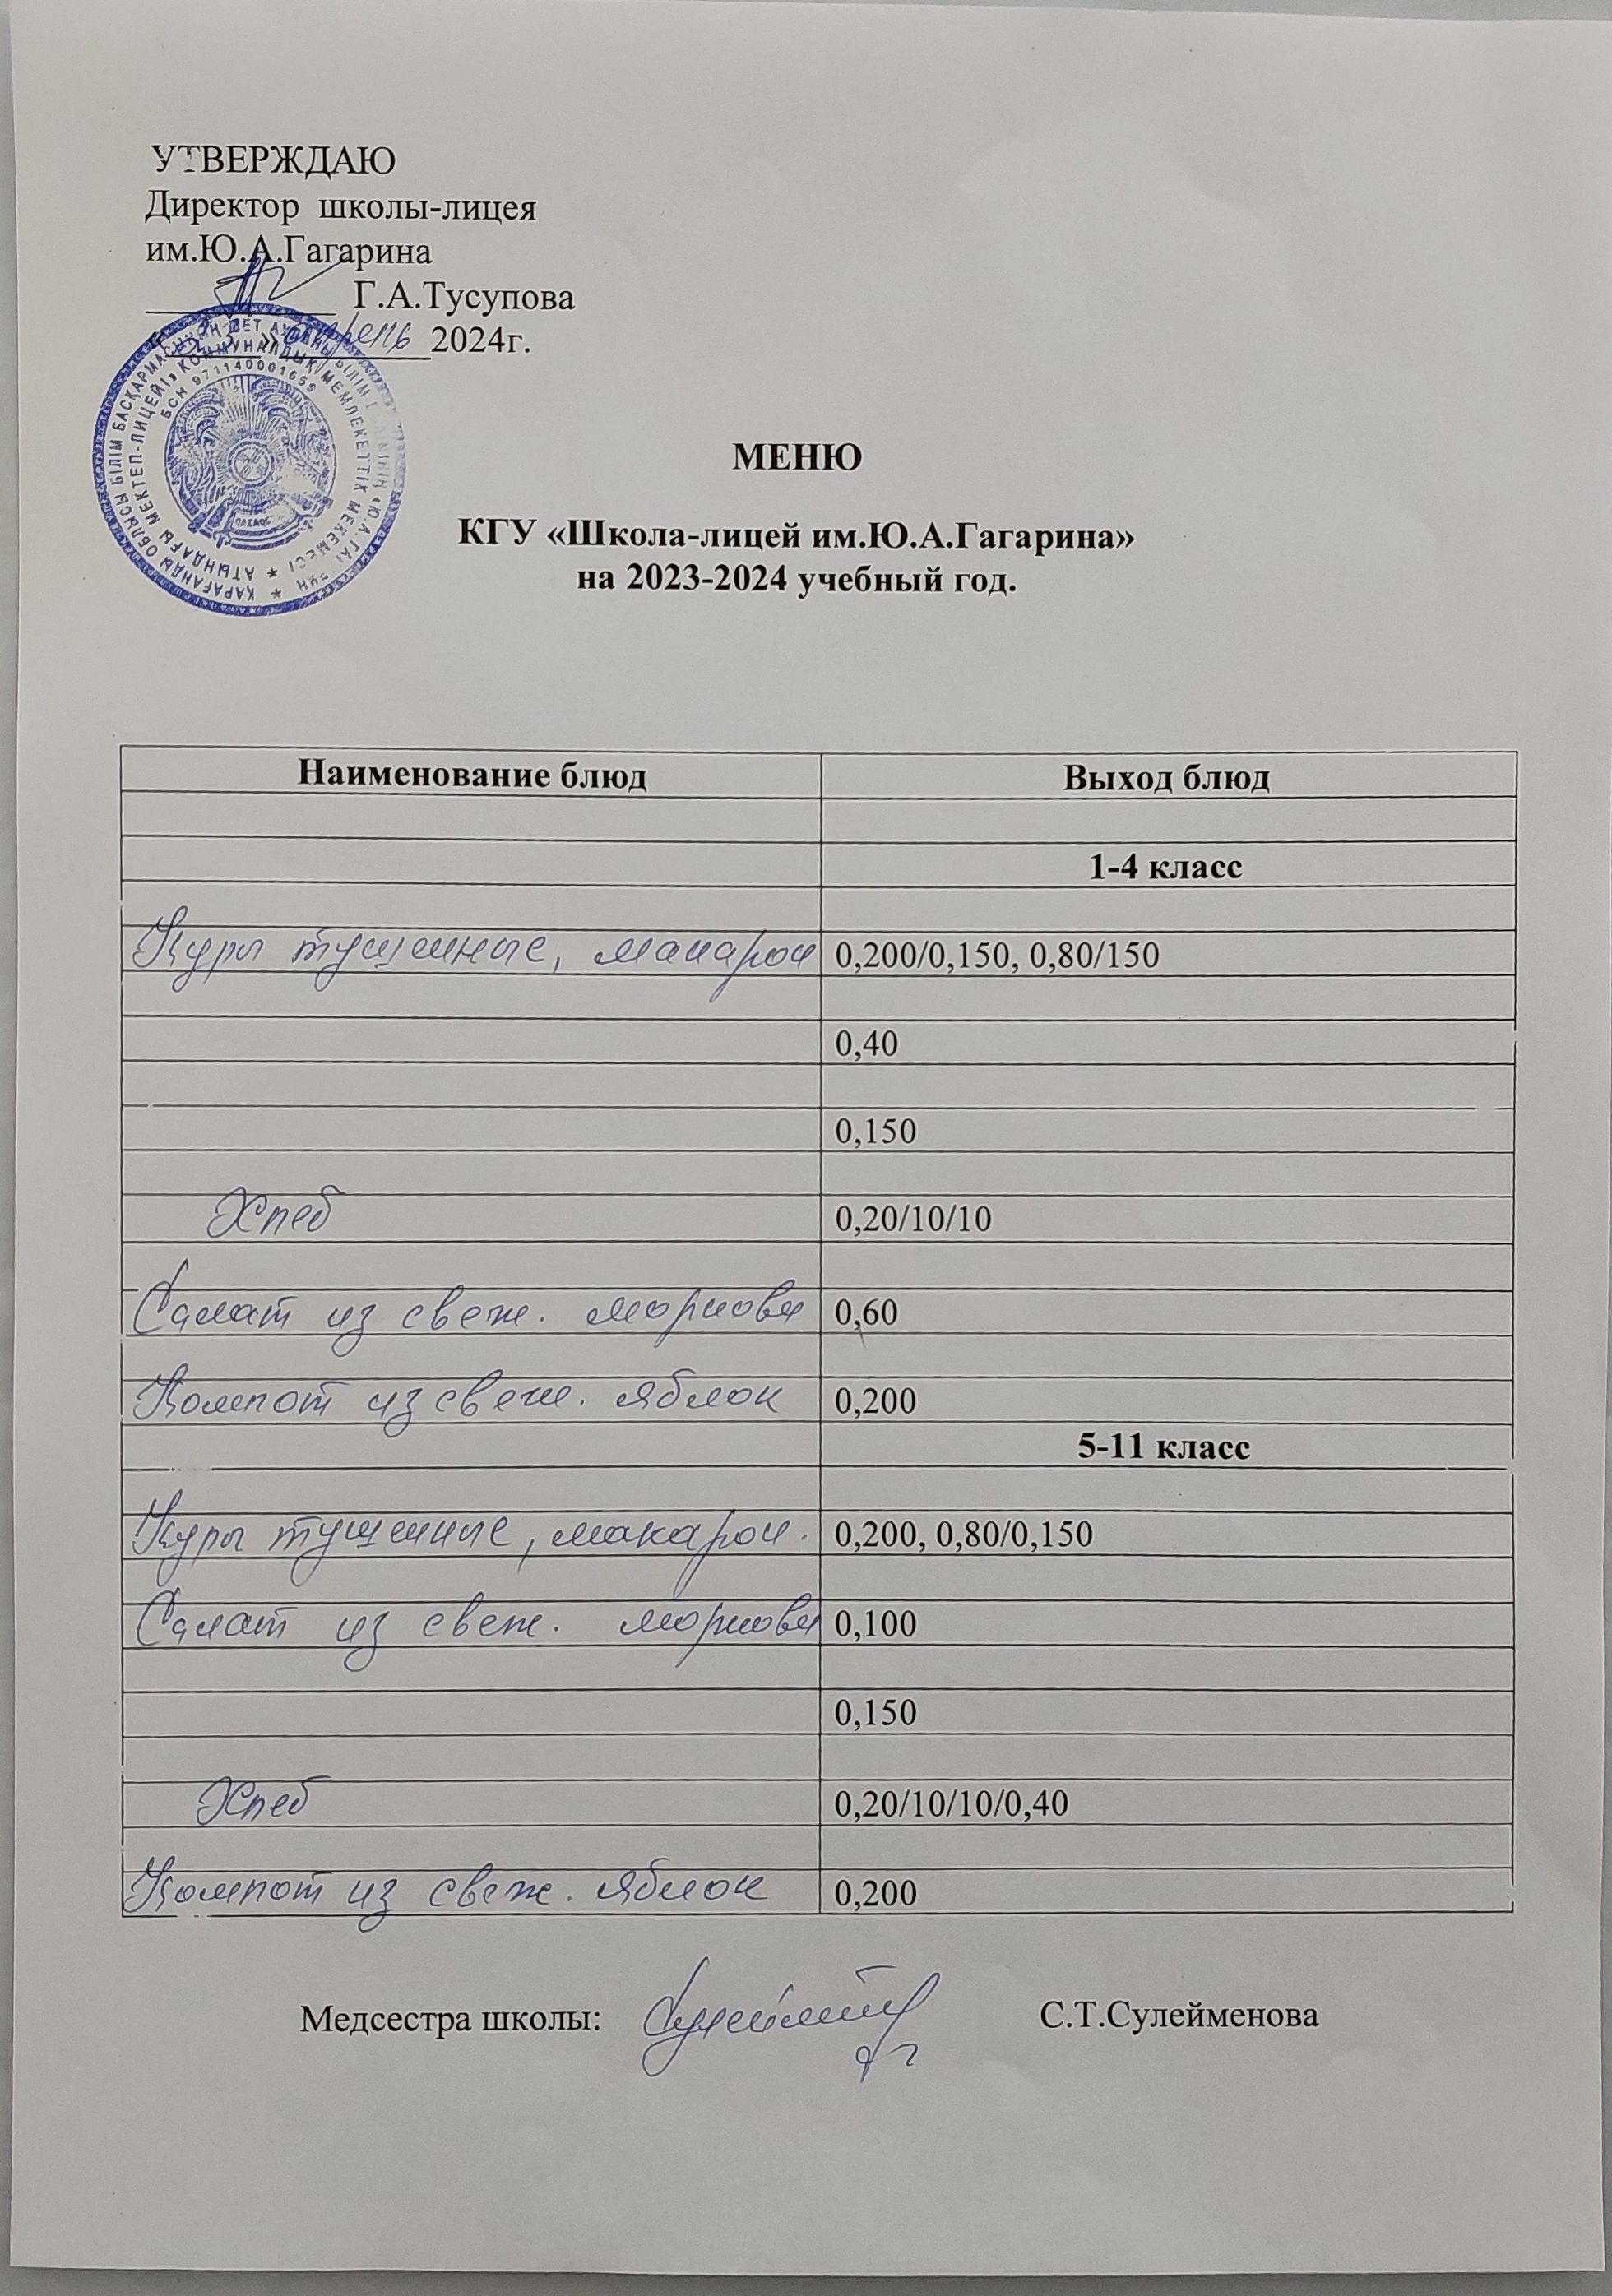 УТВЕРЖДАЮ
Директор школы-лицея
им.Ю.А.Гагарина
Г.А.Тусупова
апрель 2024г.
БСН 971140001659
МЕНЮ
КГУ «Школа-лицей им.Ю.А.Гагарина»
на 2023-2024 учебный год.
Наименование блюд Выход блюд
1-4 класс
Куры тушенные, макарон 0,200/0,150, 0,80/150
0,40
0,150
Хлеб 0,20/10/10
Салат из свеж. моркови 0,60
Компот из свеж. яблок 0,200
5-11 класс
Куры тушенные, макарон. 0,200, 0,80/0,150
Салат из свеж. моркови 0,100
0,150
Хлеб 0,20/10/10/0,40
Компот из свеж. яблок 0,200
Медсестра школы: С.Т.Сулейменова